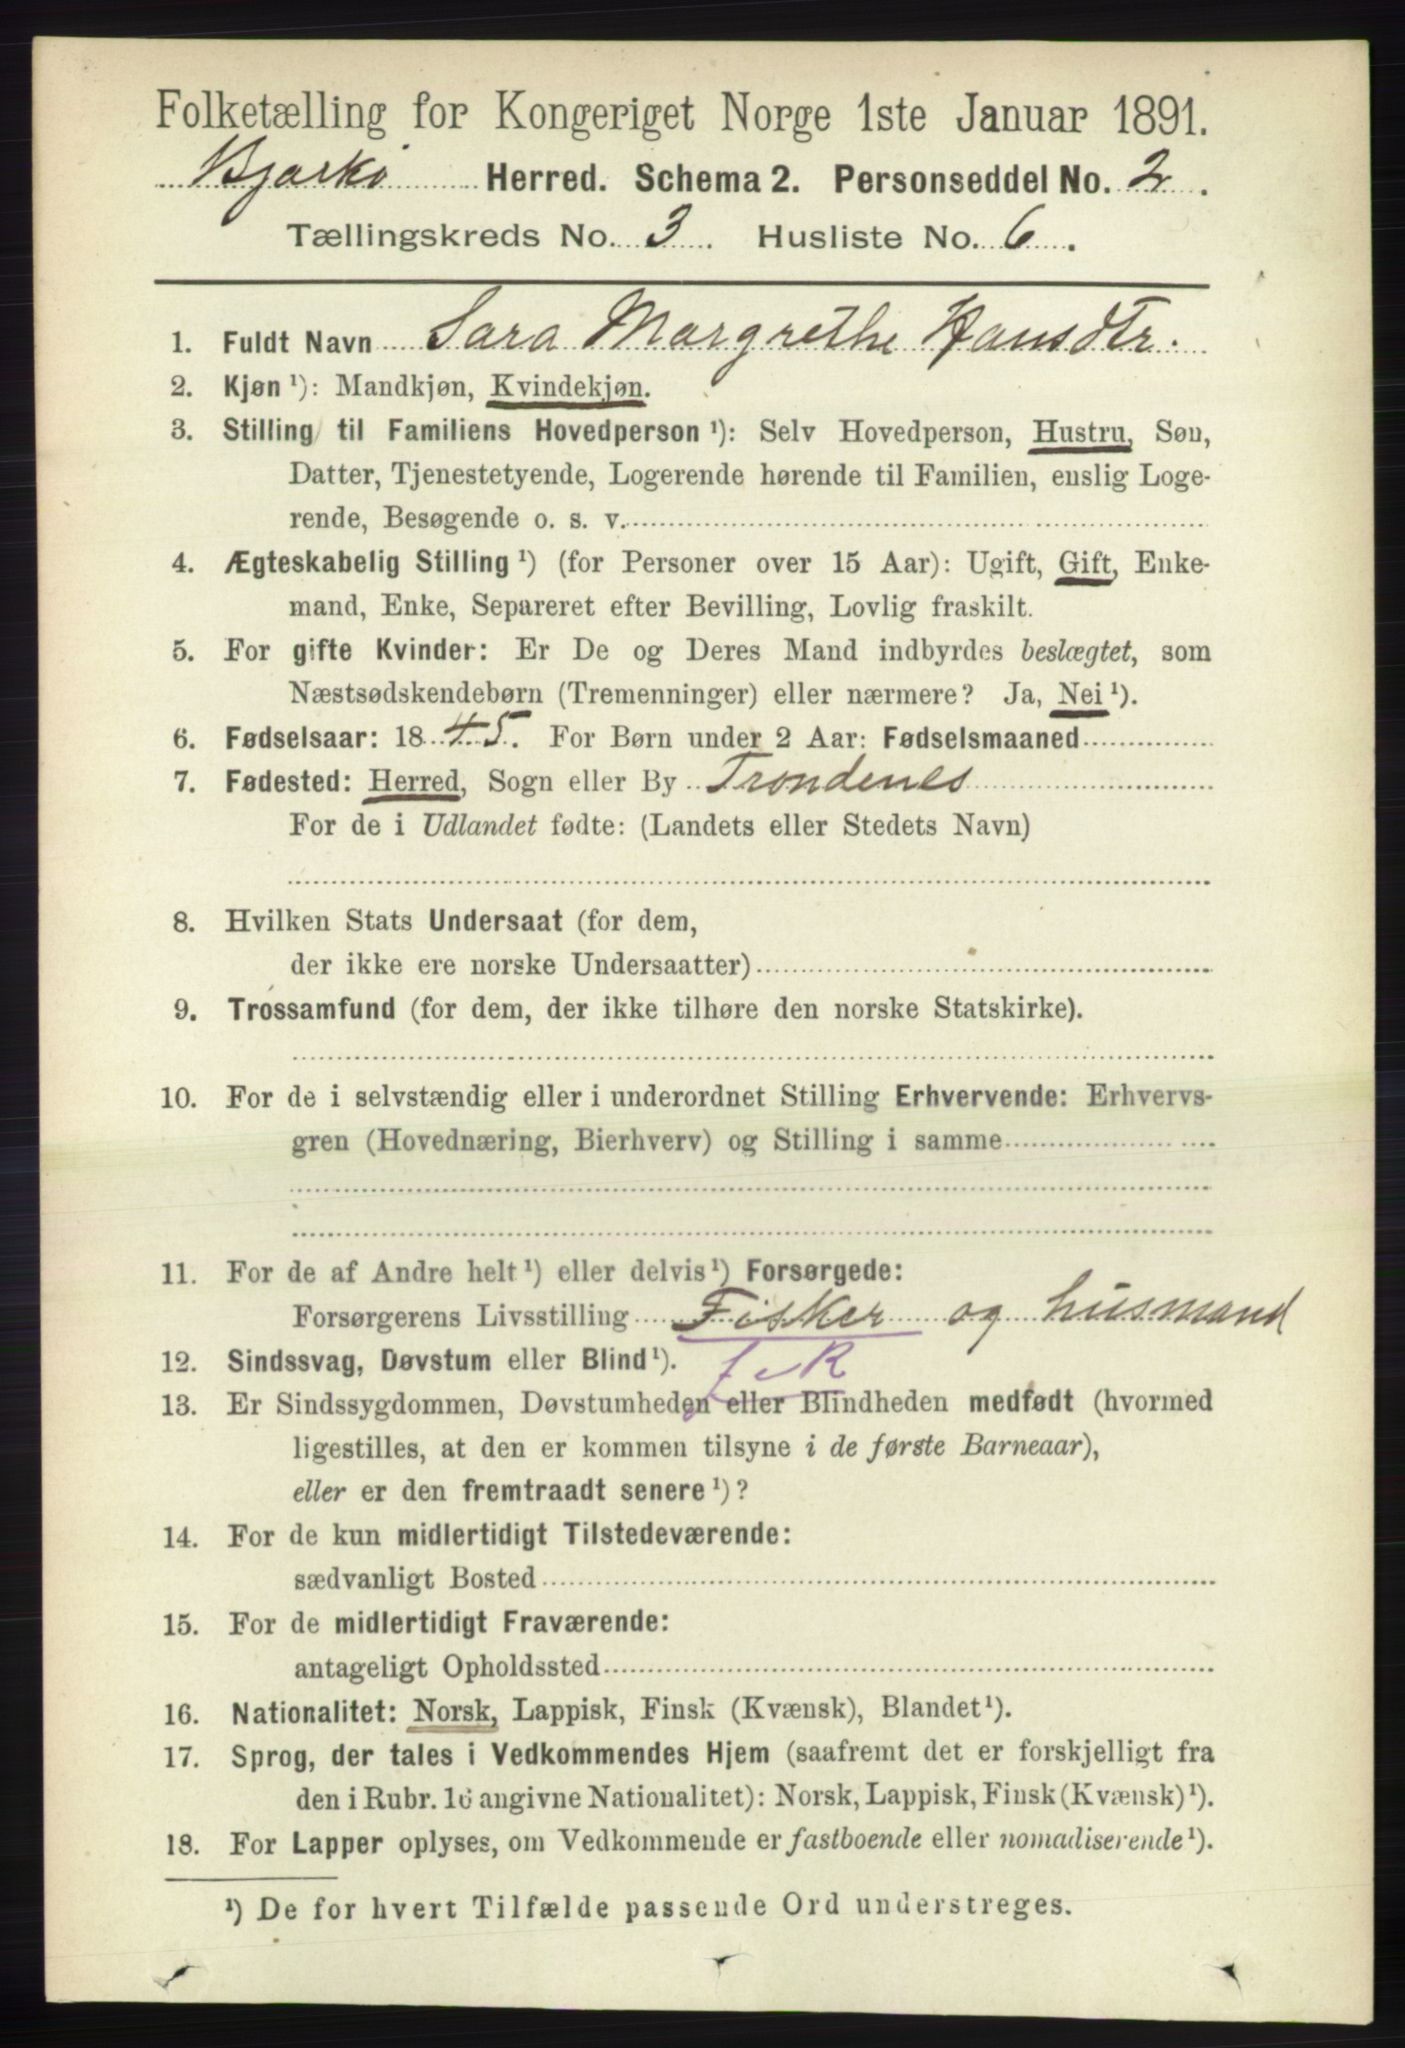 Folketælling for Kongeriget Norge 1ste Januar 1891.
Bjarkø Herred. Schema 2. Personseddel No. 2.
Tællingskreds No. 3. Husliste No. 6.
1. Fuldt Navn Sara Margrethe Hansdtr.
2. Kjøn ¹): Mandkjøn, Kvindekjøn.
3. Stilling til Familiens Hovedperson ¹): Selv Hovedperson, Hustru, Søn,
Datter, Tjenestetyende, Logerende hørende til Familien, enslig Loge-
rende, Besøgende o. s. v.
4. Ægteskabelig Stilling ¹) (for Personer over 15 Aar): Ugift, Gift, Enke-
mand, Enke, Separeret efter Bevilling, Lovlig fraskilt.
5. For gifte Kvinder: Er De og Deres Mand indbyrdes beslægtet, som
Næstsødskendebørn (Tremenninger) eller nærmere? Ja, Nei ¹).
6. Fødselsaar: 1845. For Børn under 2 Aar: Fødselsmaaned
7. Fødested: Herred, Sogn eller By Trondenes
For de i Udlandet fødte: (Landets eller Stedets Navn)
8. Hvilken Stats Undersaat (for dem,
der ikke ere norske Undersaatter)
9. Trossamfund (for dem, der ikke tilhøre den norske Statskirke).
10. For de i selvstændig eller i underordnet Stilling Erhvervende: Erhvervs-
gren (Hovednæring, Bierhverv) og Stilling i samme
11. For de af Andre helt ¹) eller delvis ¹) Forsørgede:
Forsørgerens Livsstilling Fisker og husmand
12. Sindssvag, Døvstum eller Blind ¹).
13. Er Sindssygdommen, Døvstumheden eller Blindheden medfødt (hvormed
ligestilles, at den er kommen tilsyne i de første Barneaar),
eller er den fremtraadt senere ¹)?
14. For de kun midlertidigt Tilstedeværende:
sædvanligt Bosted
15. For de midlertidigt Fraværende:
antageligt Opholdssted
16. Nationalitet: Norsk, Lappisk, Finsk (Kvænsk), Blandet ¹).
17. Sprog, der tales i Vedkommendes Hjem (saafremt det er forskjelligt fra
den i Rubr. 16 angivne Nationalitet): Norsk, Lappisk, Finsk (Kvænsk) ¹).
18. For Lapper oplyses, om Vedkommende er fastboende eller nomadiserende ¹).
¹) De for hvert Tilfælde passende Ord understreges.